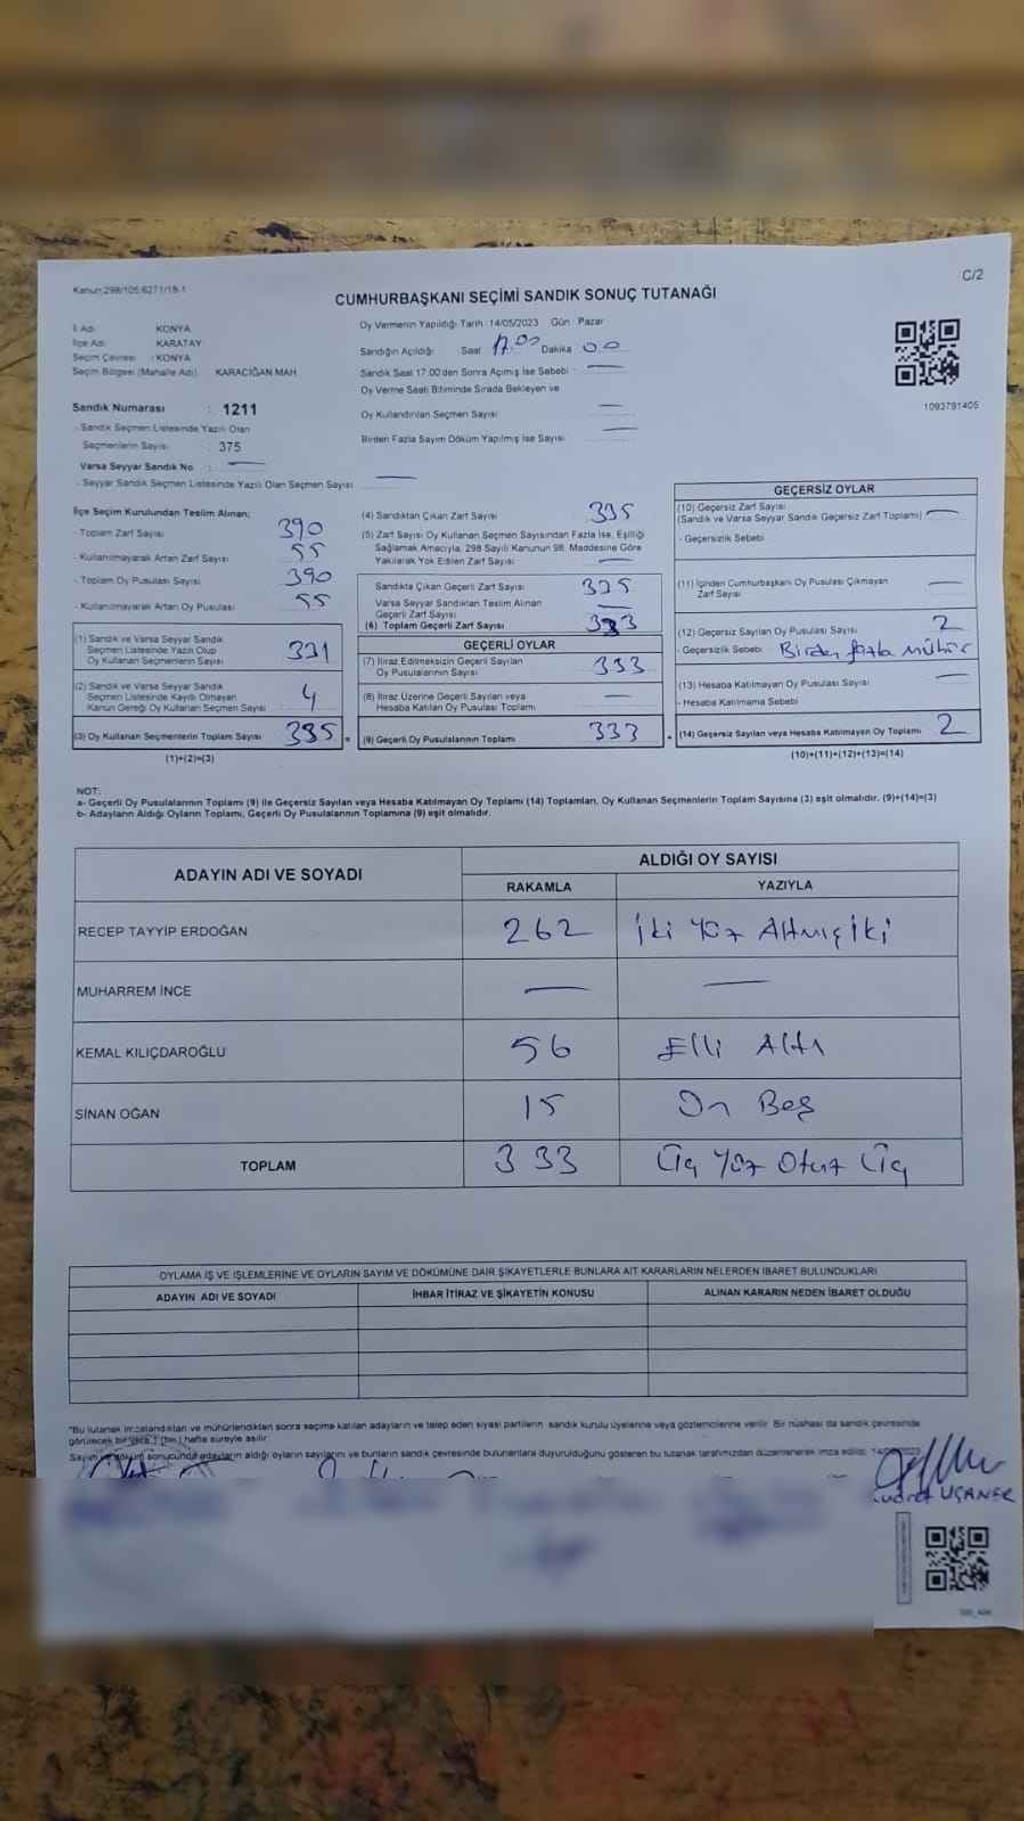 Kanun:298/105,6271/18-1
C/2
CUMHURBAŞKANI SEÇİMİ SANDIK SONUÇ TUTANAĞI
İl Adı : KONYA
İlçe Adı : KARATAY
Seçim Çevresi : KONYA
Seçim Bölgesi (Mahalle Adı) : KARACİĞAN MAH
Sandık Numarası : 1211
- Sandık Seçmen Listesinde Yazılı Olan
Seçmenlerin Sayısı : 375
Varsa Seyyar Sandık No : —
- Seyyar Sandık Seçmen Listesinde Yazılı Olan Seçmen Sayısı —
Oy Vermenin Yapıldığı Tarih :14/05/2023 Gün : Pazar
Sandığın Açıldığı Saat 17.00 Dakika 00
Sandık Saat 17.00'den Sonra Açılmış İse Sebebi : —
Oy Verme Saati Bitiminde Sırada Bekleyen ve
Oy Kullandırılan Seçmen Sayısı —
Birden Fazla Sayım Döküm Yapılmış İse Sayısı —
1093791405
İlçe Seçim Kurulundan Teslim Alınan;
- Toplam Zarf Sayısı 390
- Kullanılmayarak Artan Zarf Sayısı 55
- Toplam Oy Pusulası Sayısı 390
- Kullanılmayarak Artan Oy Pusulası 55
(1) Sandık ve Varsa Seyyar Sandık
Seçmen Listesinde Yazılı Olup
Oy Kullanan Seçmenlerin Sayısı 331
(2) Sandık ve Varsa Seyyar Sandık
Seçmen Listesinde Kayıtlı Olmayan
Kanun Gereği Oy Kullanan Seçmen Sayısı 4
(3) Oy Kullanan Seçmenlerin Toplam Sayısı 335 =
(1)+(2)=(3)
(4) Sandıktan Çıkan Zarf Sayısı 335
(5) Zarf Sayısı Oy Kullanan Seçmen Sayısından Fazla İse, Eşitliği
Sağlamak Amacıyla, 298 Sayılı Kanunun 98. Maddesine Göre
Yakılarak Yok Edilen Zarf Sayısı —
Sandıkta Çıkan Geçerli Zarf Sayısı 335
Varsa Seyyar Sandıktan Teslim Alınan
Geçerli Zarf Sayısı —
(6) Toplam Geçerli Zarf Sayısı 333
GEÇERLİ OYLAR
(7) İtiraz Edilmeksizin Geçerli Sayılan
Oy Pusulalarının Sayısı 333
(8) İtiraz Üzerine Geçerli Sayılan veya
Hesaba Katılan Oy Pusulası Toplamı —
(9) Geçerli Oy Pusulalarının Toplamı 333 +
GEÇERSİZ OYLAR
(10) Geçersiz Zarf Sayısı
(Sandık ve Varsa Seyyar Sandık Geçersiz Zarf Toplamı) —
- Geçersizlik Sebebi
(11) İçinden Cumhurbaşkanı Oy Pusulası Çıkmayan
Zarf Sayısı —
(12) Geçersiz Sayılan Oy Pusulası Sayısı 2
- Geçersizlik Sebebi : Birden fazla mühür
(13) Hesaba Katılmayan Oy Pusulası Sayısı —
- Hesaba Katılmama Sebebi
(14) Geçersiz Sayılan veya Hesaba Katılmayan Oy Toplamı 2
(10)+(11)+(12)+(13)=(14)
NOT:
a- Geçerli Oy Pusulalarının Toplamı (9) ile Geçersiz Sayılan veya Hesaba Katılmayan Oy Toplamı (14) Toplamları, Oy Kullanan Seçmenlerin Toplam Sayısına (3) eşit olmalıdır. (9)+(14)=(3)
b- Adayların Aldığı Oyların Toplamı, Geçerli Oy Pusulalarının Toplamına (9) eşit olmalıdır.
ADAYIN ADI VE SOYADI
ALDIĞI OY SAYISI
RAKAMLA YAZIYLA
RECEP TAYYİP ERDOĞAN 262 İki Yüz Altmış İki
MUHARREM İNCE — —
KEMAL KILIÇDAROĞLU 56 Elli Altı
SİNAN OĞAN 15 On Beş
TOPLAM 333 Üç Yüz Otuz Üç
OYLAMA İŞ VE İŞLEMLERİNE VE OYLARIN SAYIM VE DÖKÜMÜNE DAİR ŞİKAYETLERLE BUNLARA AİT KARARLARIN NELERDEN İBARET BULUNDUKLARI
ADAYIN ADI VE SOYADI İHBAR İTİRAZ VE ŞİKAYETİN KONUSU ALINAN KARARIN NEDEN İBARET OLDUĞU
"Bu tutanak imzalandıktan ve mühürlendikten sonra seçime katılan adayların ve talep eden siyasi partilerin sandık kurulu üyelerine veya gözlemcilerine verilir. Bir nüshası da sandık çevresinde
görülecek bir yere 1 (bir) hafta süreyle asılır.
Sayım ve döküm sonucunda adayların aldığı oyların sayılarını ve bunların sandık çevresinde bulunanlara duyurulduğunu gösteren bu tutanak tarafımızdan düzenlenerek imza edildi.
UÇANER